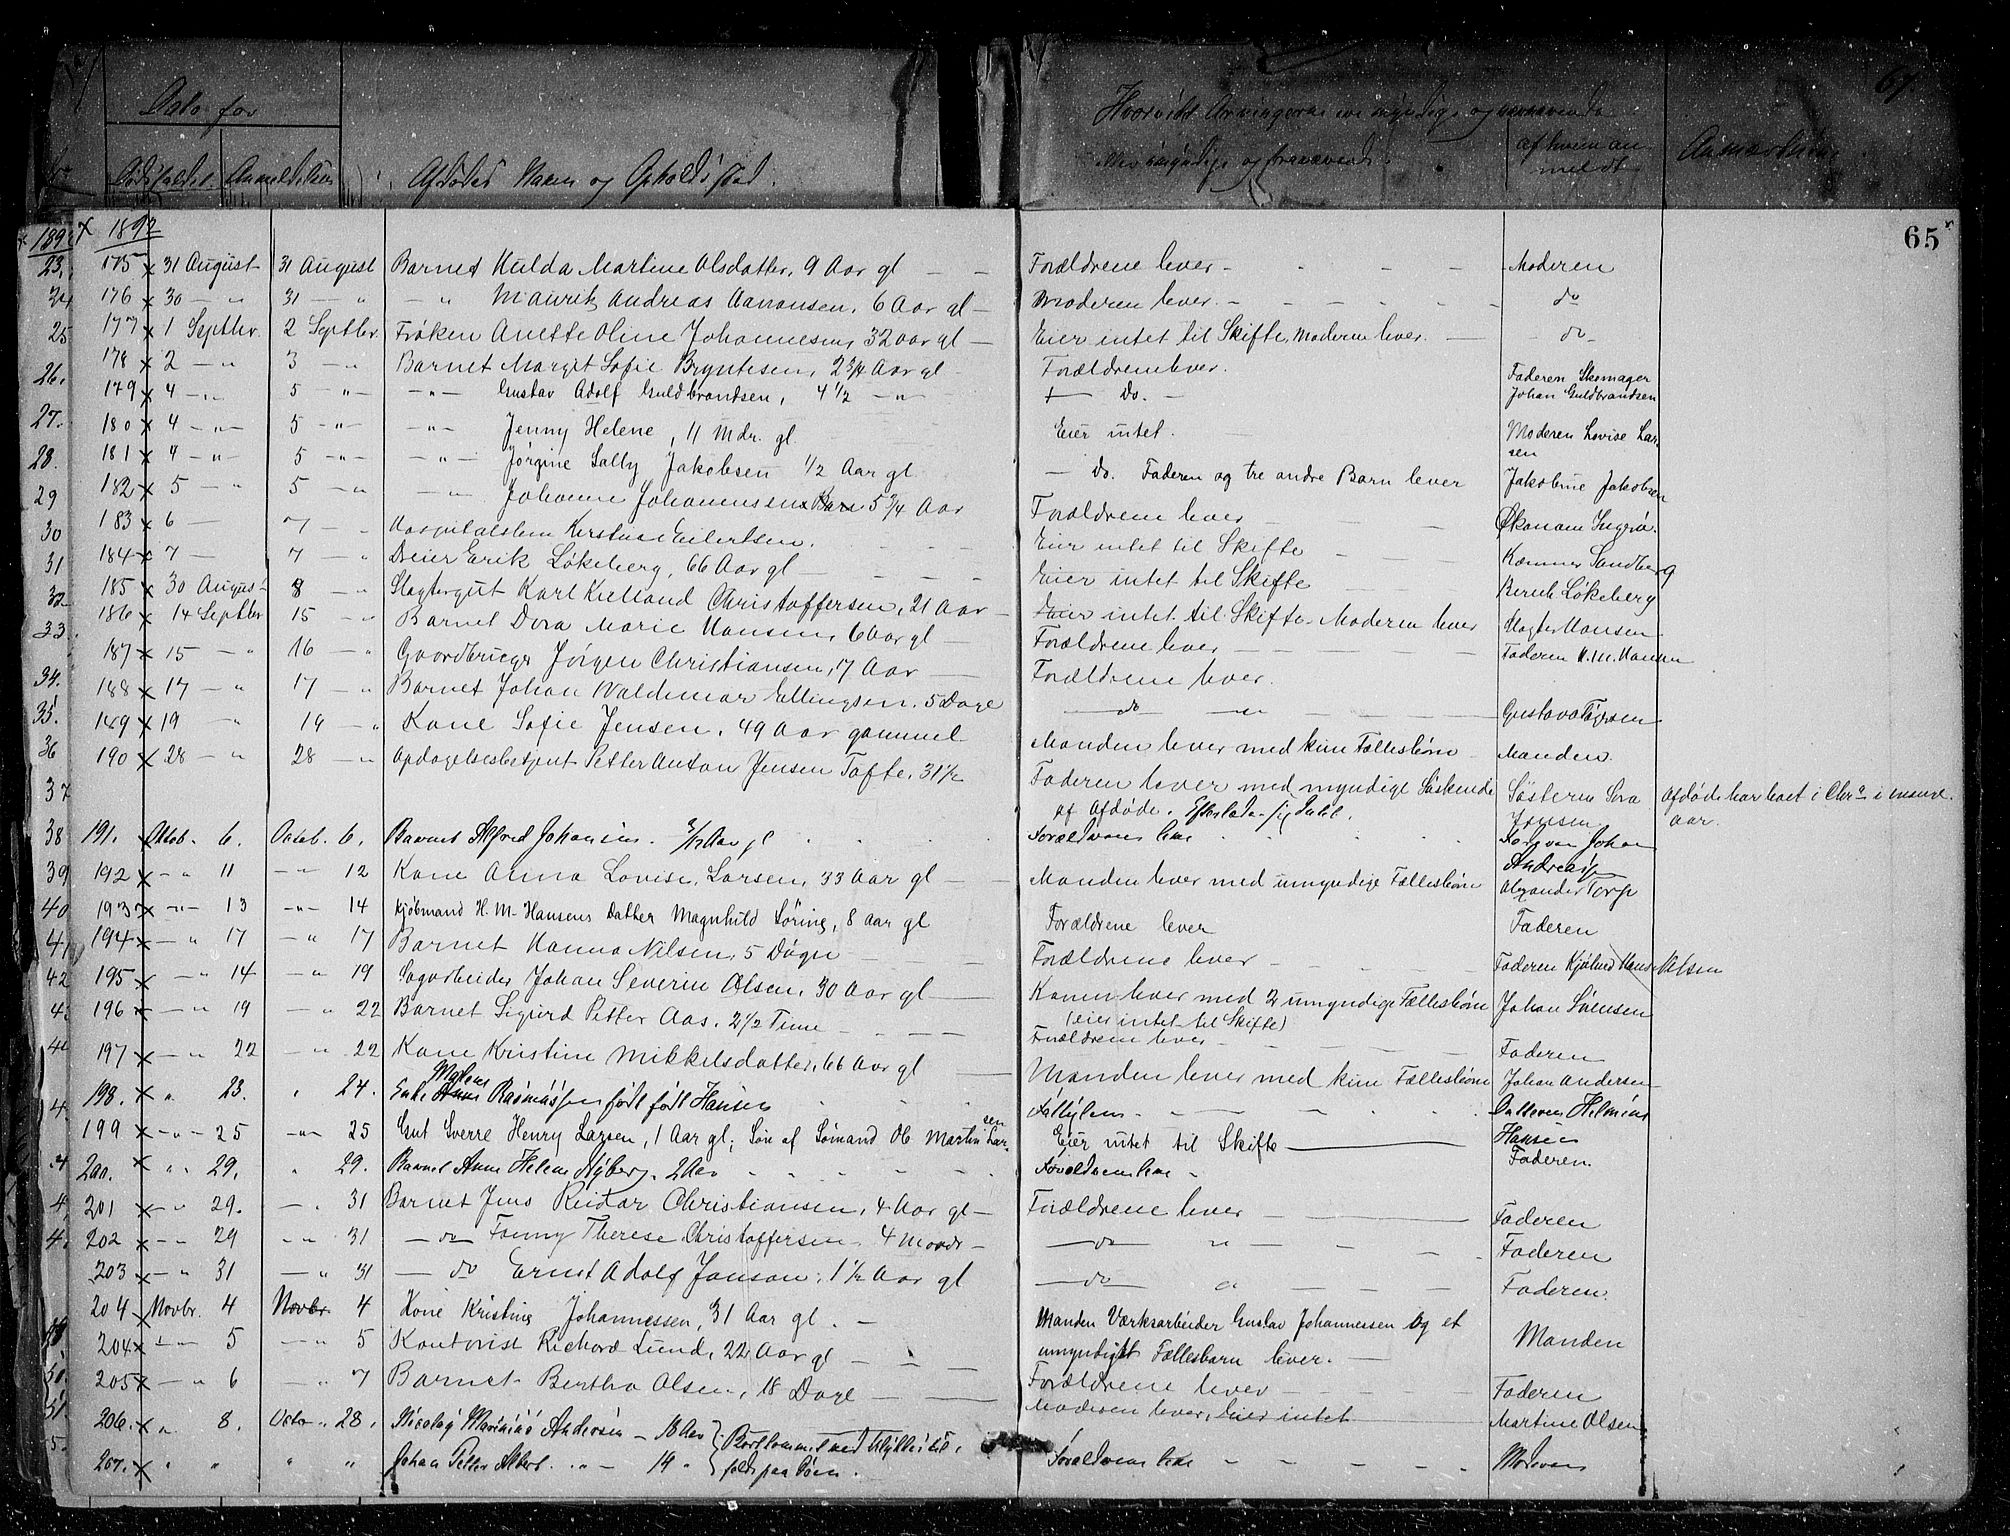 Dato for
Hvorvidt Arvingerne ere myndige og nærværende
eller umyndige og fraværende
af hvem anmeldt
Anmærkning
Dødsfaldet. Anmeldelsen
Afdødes Navn og Opholdssted.
65
1892
175 x 31 August 31 August Barnet Hulda Martine Olsdatter, 9 Aar gl — — Forældrene lever - Moderen
176 x 30 — " 31 — " — " Maurik Andreas Aanonsen, 6 Aar gl — Moderen lever - do
177 x 1 Septbr. 2 Septbr. Frøken Anette Oline Johannesen, 32 aar gl — Eier intet til Skifte, Moderen lever. — do
178 x 2 — " 3 — " Barnet Margit Sofie Bryntesen, 2 3/4 Aar gl Forældrene lever. Faderen Skomager
179 x 4 — " — 5 " — — " — Gustav Adolf Guldbrandsen, 4 1/2 — " — — Do. — Johan Guldbrandsen
180 x 4 — " — 5 — " — — " — Jenny Helene, 11 Mdr. gl Eier intet. Moderen Lovise Larsen
181 x 4 — " — 5 — " — — " — Jørgine Sally Jakobsen 1/2 Aar gl — Do. Faderen og tre andre Barn lever Jakobine Jakobsen
182 x 5 — " 5 — " — " Johanne Johannessen 5 3/4 Aar Forældrene lever
183 x 6 — 7 — Hospitalslem Kerstine Eilertsen. Eier intet til Skifte Økonom
184 x 7 — 7 — " Dreier Erik Løkeberg, 66 Aar gl Eier intet til Skifte Kæmner Sandberg
185 x 30 August 8 — " Slagtergut Karl Kielland Christoffersen, 21 Aar — Eier intet til Skifte. Moderen lever Bernh Løkeberg
186 x 14 Septbr 15 — " Barnet Dora Marie Hansen, 6 Aar gl — Forældrene lever Slagter Hansen
187 x 15 — " 16 — " Gaardbruger Jörgen Christiansen, 17 Aar — Forældrene lever. Faderen H. M. Hansen
188 x 17 — " 17 — " Barnet Johan Waldemar Ellingsen, 5 Dage — do —
189 x 19 — " 19 — " Kone Sofie Jensen, 49 Aar gammel Manden lever med kun Fællesbörn Manden.
190 x 28 — " 28 — " Opdagelsesbetjent Petter Anton Jensen Tofte, 31 1/2 Faderen lever med myndige Söskende Sösteren
af Afdøde. Afdøde har boet i Chra i mange aar.
191. Oktob. 6. October. 6. Barnet Alfred Johansen. Aar gl Forældrene leve Johan
Andreassen
192 x — " 11 — " 12 Kone Anna Lovise Larsen, 33 Aar gl — Manden lever med umyndige Fællesbörn Alexander Torp
193 x — " — 13 — " — 14 Kjøbmand H. M. Hansens Datter Magnhild Söring, 8 aar gl Forældrene lever Faderen
194 x — " 17 — " 17 Barnet Hanna Nilsen, 5 Døgn Forældrene lever Faderen Kjølner Hans Nilsen
195 x — " 14 — " 19 Sagarbeider Johan Severin Olsen, 30 Aar gl — Konen lever med 2 umyndige Fællesbörn Johan Sörensen
(eier intet til Skifte)
196 x — " 19 — " 22 Barnet Sigurd Petter Aas, 2 1/2 Time Forældrene lever Faderen
197 x — " 22 — " 22 Kone Kristine Mikkelsdatter, 66 Aar gl — Manden lever med kun Fællesbörn Johan Andersen
198. x " 23. " 24. Enke Rasmussen født Hansen Datteren
Hansen
199 x — " — 25 — " — 25 Gut Sverre Henry Larsen, 1 Aar gl; Søn af Sømand Ob Martin Larsen Eier intet til Skifte — Faderen.
200. x " " 29. " 29. Barnet Anne Helene Nyberg, 2 Aar Forældrene leve
201 x — " 29. — . 31 Barnet Jens Reidar Christiansen, 4 Aar gl — Forældrene lever Faderen
202 x — " 29 — " 31 — do — Fanny Therese Christoffersen 4 Maaneder — — do — " Faderen
203 x — " 31 — " 31 — do Ernst Adolf Jonson, 1 1/2 Aar gl — do — " Faderen.
204 Novbr. 4 Novbr. 4 Kone Kristine Johannessen, 31 Aar gl. — Manden Værksarbeider Gustav Johannessen og et
umyndigt Fællesbarn lever. — Manden
204 x — " 5 — " 5 Kontorist Richard Lund, 22 Aar gl — Forældrene lever Faderen
205 x — " 6 — " 7 Barnet Bertha Olsen, 18 Dage — Moderen lever, Eier intet Martine Olsen
206. x " 8. Octr " 28. Nicolay Marinius Andersen — 18 Aar Bortkommet ved Ulykkestil-
207. x " " " " Johan Petter Albert " — 14 " fælde paa Søen. Forældrene leve Moderen